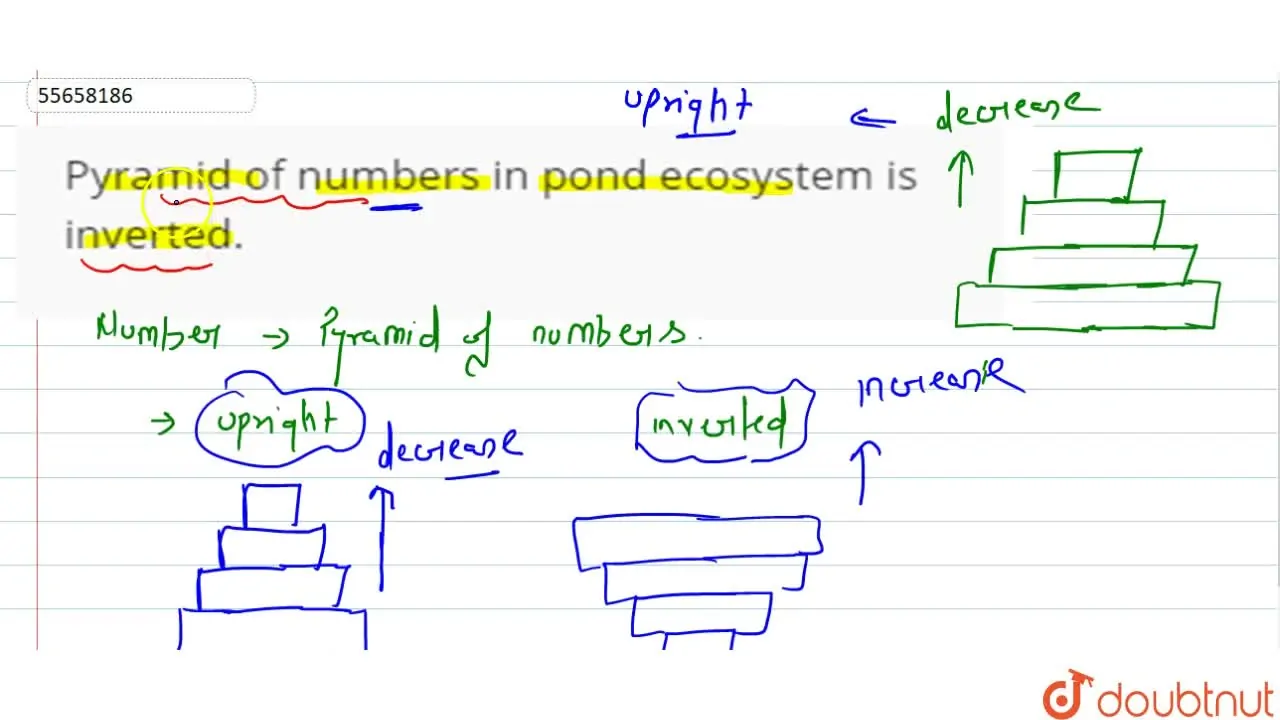 55658186
upright ← decrease
Pyramid of numbers in pond ecosystem is
inverted.
Number → Pyramid of numbers.
→ upright
inverted
increase
decrease
doubtnut